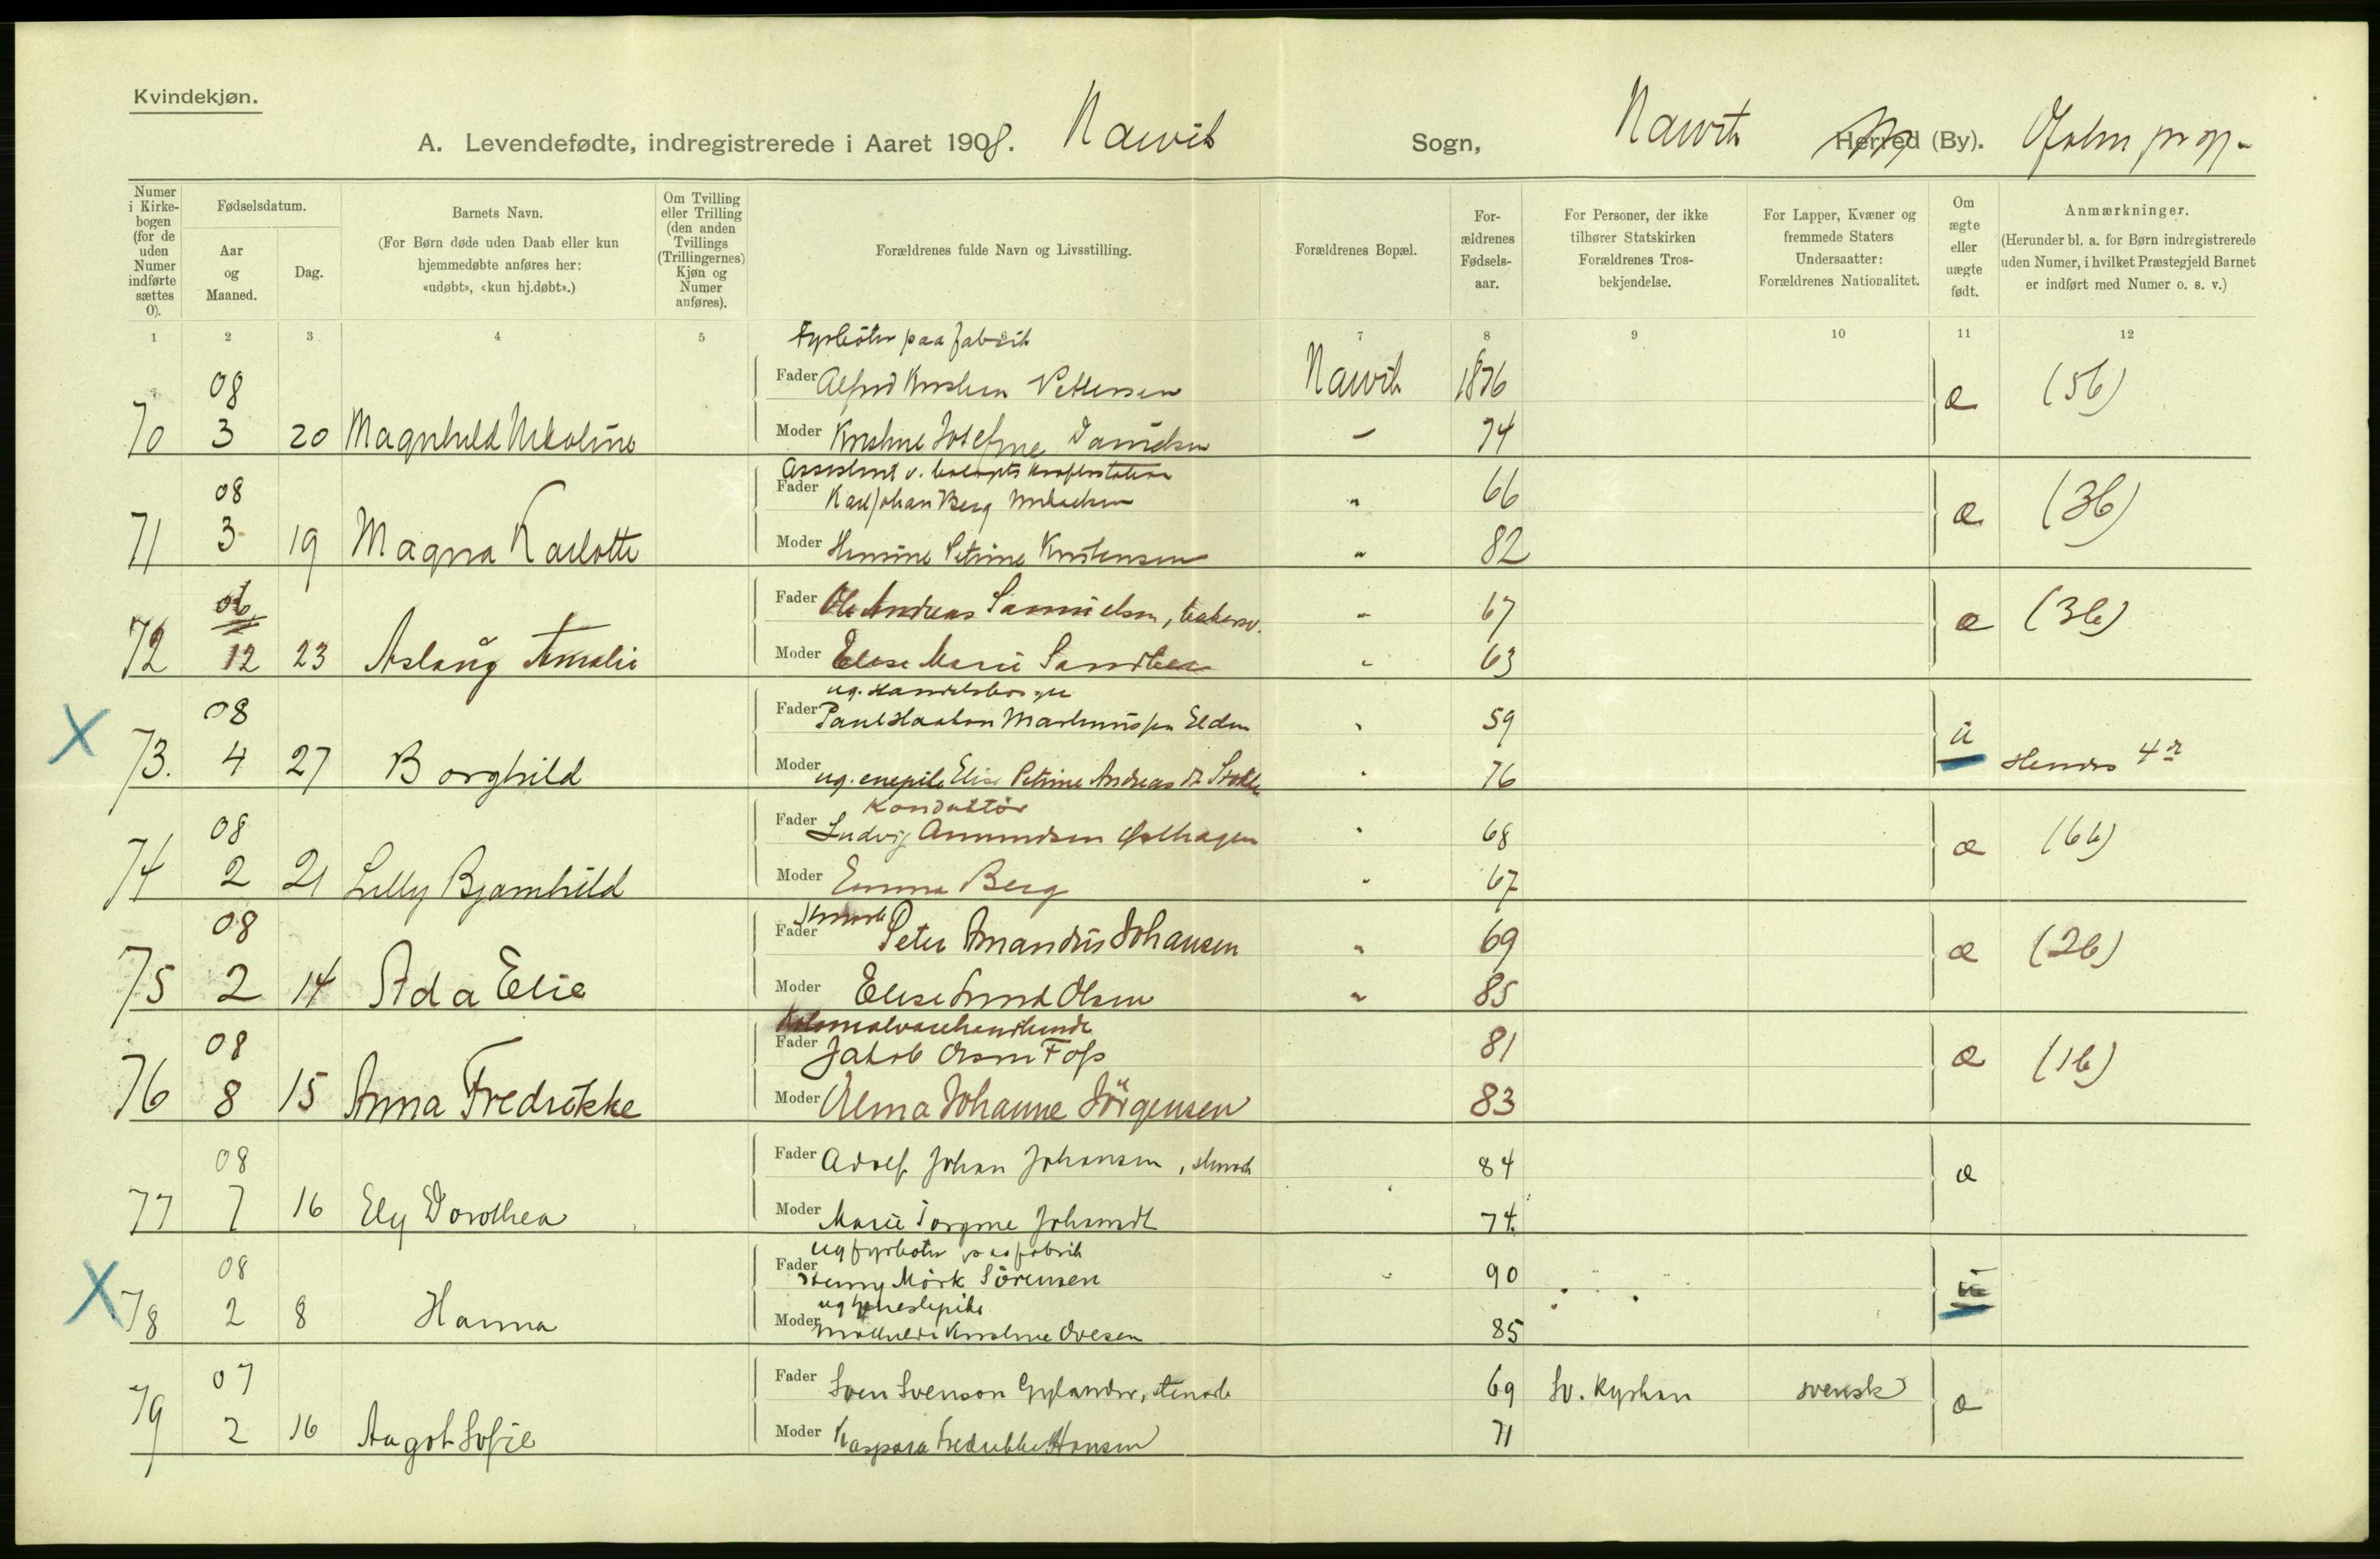 Kvindekjøn.
A. Levendefødte, indregistrerede i Aaret 1908. Narvik Sogn, Narvik Herred (By). Ofoten
Numer i Kirkebogen (for de uden Numer indførte sættes 0).
Fødselsdatum.
Aar og Maaned.
Dag.
Barnets Navn.
(For Børn døde uden Daab eller kun hjemmedøbte anføres her: «udøbt», «kun hj.døbt».)
Om Tvilling eller Trilling (den anden Tvillings (Trillingernes) Kjøn og Numer anføres).
Forældrenes fulde Navn og Livsstilling.
Forældrenes Bopæl.
Forældrenes Fødselsaar.
For Personer, der ikke tilhører Statskirken Forældrenes Trosbekjendelse.
For Lapper, Kvæner og fremmede Staters Undersaatter: Forældrenes Nationalitet.
Om ægte eller uægte født.
Anmærkninger.
(Herunder bl. a. for Børn indregistrerede uden Numer, i hvilket Præstegjeld Barnet er indført med Numer o. s. v.)
1 2 3 4 5 7 8 9 10 11 12
Fyrbøter paa fabrik
08 Fader Alfred Kristian Pettersen Narvik 1876 æ (5b)
70 3 20 Magnhild Nikoline Moder Kristine Josefine Danielsen - 74
Assistent v.
08 Fader Karl Johan Berg Mikaelsen " 66 æ (3b)
71 3 19 Magna Karlotte Moder Hensine Petrine Kristensen " 82
06 Fader Ole Andreas Samuelsen, " 67 æ (3b)
72 12 23 Aslaug Amalie Moder Elise Marie " 63
ug.
X 08 Fader Paul Haakon Martinussen Elden " 59 u
73. 4 27 Borghild Moder ug. Elise Petrine " 76 Hendes 4de
Konduktør
08 Fader Ludvig Amundsen Østhagen " 68 æ (6b)
74 2 21 Lilly Bjarnhild Moder Emma Berg " 67
08 Fader Peter Amandus Johansen " 69 æ (2b)
75 2 14 Ada Elie Moder Elise Lund Olsen " 85
Kolonialvarehandlende
08 Fader Jakob Foss 81 æ (1b)
76 8 15 Anna Fredrikke Moder Alma Johanne Jörgensen 83
08 Fader Adolf Johan Johansen, 84 æ
77 7 16 Ely Dorothea Moder Marie Johansdt 74
ug fyrbøter paa fabrik
X 08 Fader Henny Mörk Sörensen " 90 u
ug tjenestepike
78 2 8 Hanna Moder Mathilde Kristine Ovesen 85
07 Fader Sven Svenson Gylander, stenarb 69 svensk æ
79 2 16 Aagot Sofie Moder Kaspara Fredrikke Hansen 71